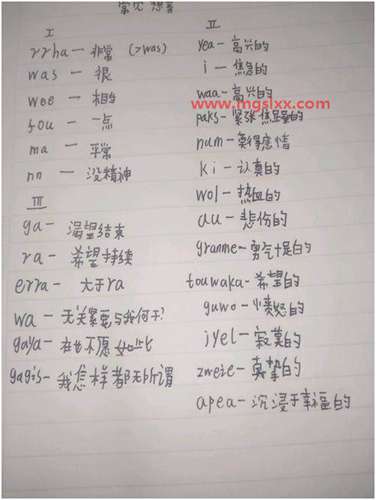 常见想音
I
rrha — 非常 (>was)
was — 很
wee — 相当
fou — 一点
ma — 平常
nn — 没精神
III
ga — 渴望结束
ra — 希望持续
erra — 大于ra
wa — 无关紧要与我何干?
gaya — 在也不愿如此
gagis — 我怎样都无所谓
II
yea — 高兴的
i — 焦急的
waa — 高兴的
www.mgslxx.com
paks — 紧张焦虑的
num — 莫得感情
ki — 认真的
wol — 热血的
au — 悲伤的
granme — 勇气十足的
touwaka — 希望的
guwo — 愤怒的
jyel — 寂寞的
zweie — 真挚的
apea — 沉浸于幸福的